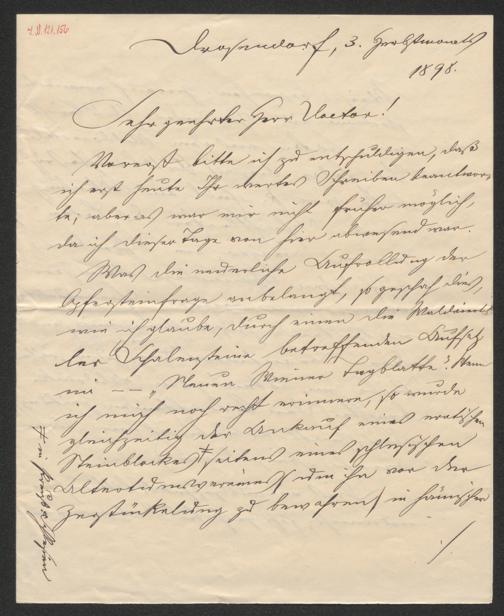 I.N. 121.156
Drosendorf, 3. Herbstmonats
1898.
Sehr geehrter Herr Doctor!
Vorerst bitte ich zu entschuldigen, daß
ich erst heute Ihr wertes Schreiben beantwor-
te; aber es war mir nicht früher möglich,
da ich dieser Tage von hier abwesend war.
Was die neuerliche Aufrollung der
Opfersteinfrage anbelangt, so geschah dies,
wie ich glaube, durch einen die
Schalensteine betreffenden Aufsatz
im "Neuen Wiener Tagblatte". Wenn
ich mich noch recht erinnere, so wurde
gleichzeitig der Ankauf eines erratischen
Steinblockes + seitens eines schlesischen
Altertumsvereines (um ihn vor der
Zerstückelung zu bewahren) in hämischer
+ in